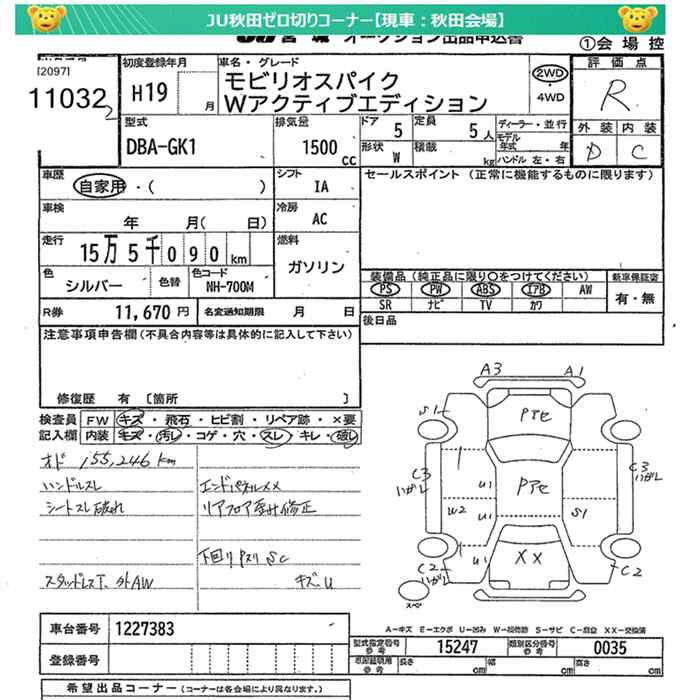 JU秋田ゼロ切りコーナー【現車：秋田会場】
JU宮城 オークション出品申込書
①会場控
[2097]
11032
2
初度登録年月
H19
月
車名・グレード
モビリオスパイク
Wアクティブエディション
2WD
・4WD
評価点
R
外装 内装
D C
型式
DBA-GK1
排気量
1500
cc
ドア 5
定員 5人
形状 W
積載 kg
ディーラー・並行
モデル年式 年
ハンドル左・右
車歴
自家用・( )
シフト
IA
セールスポイント（正常に機能するものに限ります）
車検
年 月( 日)
冷房
AC
走行
15万5千090km
燃料
ガソリン
色
シルバー
色替
色コード
NH-700M
装備品（純正品に限り○をつけてください）
PS PW ABS エアB AW
SR ナビ TV カワ
新車保証書
有・無
R券 11,670円
名変通知期限 月 日
後日品
注意事項申告欄(不具合内容等は具体的に記入して下さい)
修復歴 有〔箇所 〕
検査員 FW キズ・飛石・ヒビ割・リペア跡・×要
記入欄 内装 キズ・汚レ・コゲ・穴・スレ・キレ・破レ
オド 155,246km
ハンドルスレ
エンドパネルXX
シートスレ破れ
リアフロア歪み修正
下回りPスリSC
スタッドレスT. 外AW
キズ.U
A3
A1
S1
Pアセ
C3
ハガレ
U1
Pアセ
C3
ハガレ
W2
U1
S1
C2
ハガレ
U1
XX
C2
スペ
A-キズ E-エクボ U-凹み W-補修跡 S-サビ C-腐食 XX-交換済
車台番号 1227383
型式指定番号
参考
15247
類別区分番号
参考
0035
登録番号
車庫証明用
参考
長さ cm
幅 cm
高さ cm
希望出品コーナー（コーナーは各会場により異なります）